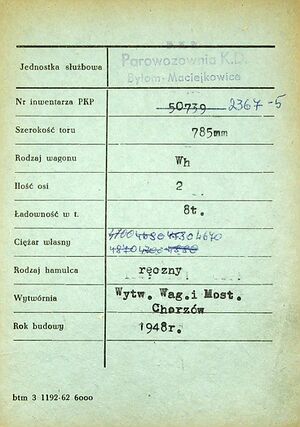 P.K.P.
Jednostka służbowa Parowozownia K.D.
Bytom-Maciejkowice
Nr inwentarza PKP 50739 2367-5
Szerokość toru 785mm
Rodzaj wagonu Wh
Ilość osi 2
Ładowność w t. 8t.
Ciężar własny 4700 4680 4670
4870 4200
Rodzaj hamulca ręczny
Wytwórnia Wytw. Wag.i Most.
Chorzów
Rok budowy 1948r.
btm 3 1192-62 6000